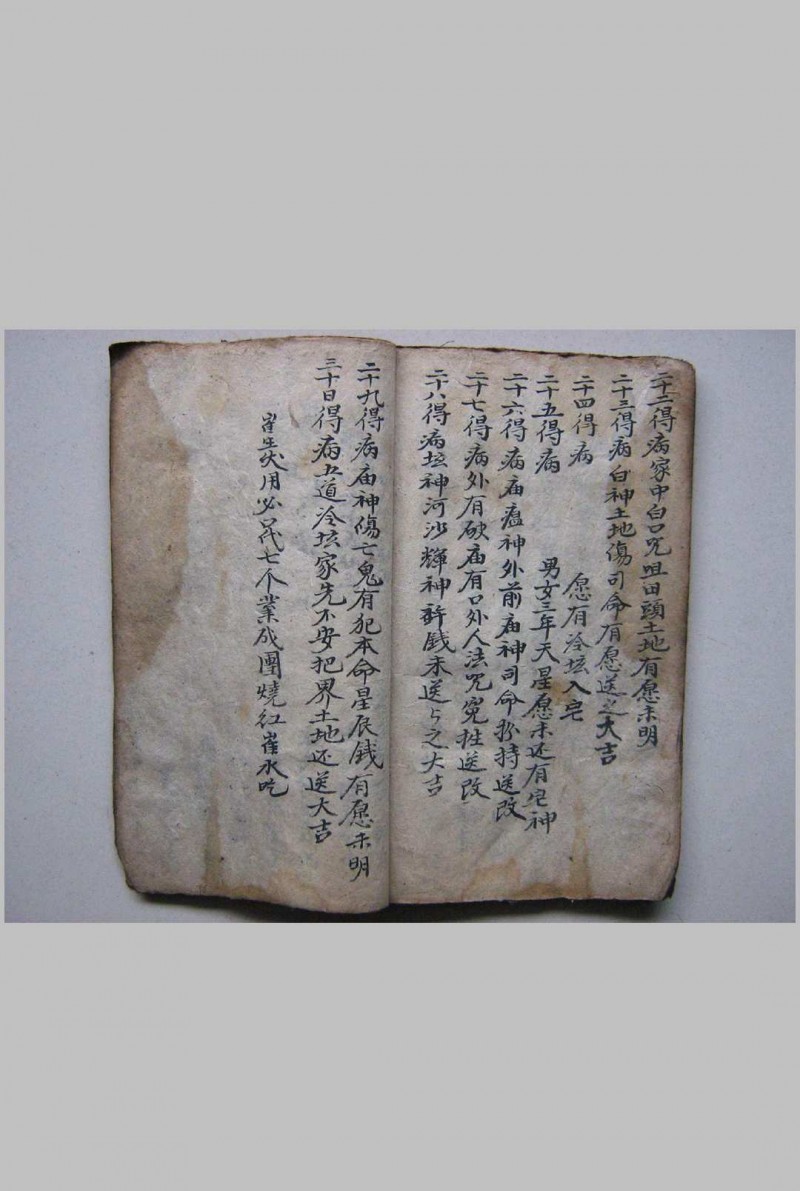 二十二得病家中白口咒咀田頭土地有愿未明
二十三得病白神土地傷司命有愿送之大吉
二十四得病 愿有冷坛入宅
二十五得病 男女三年天星愿未还有宅神
二十六得病庙瘟神外前庙神司命扮持送改
二十七得病外有破庙有口外人法咒冤牲送改
二十八得病坛神河沙輝神許錢未送与之大吉
二十九得病庙神傷亡鬼有犯本命星辰錢有愿未明
三十日得病五道冷坛家先不安把界土地还送大吉
崔生 用必 七个業成團燒红崔水吃